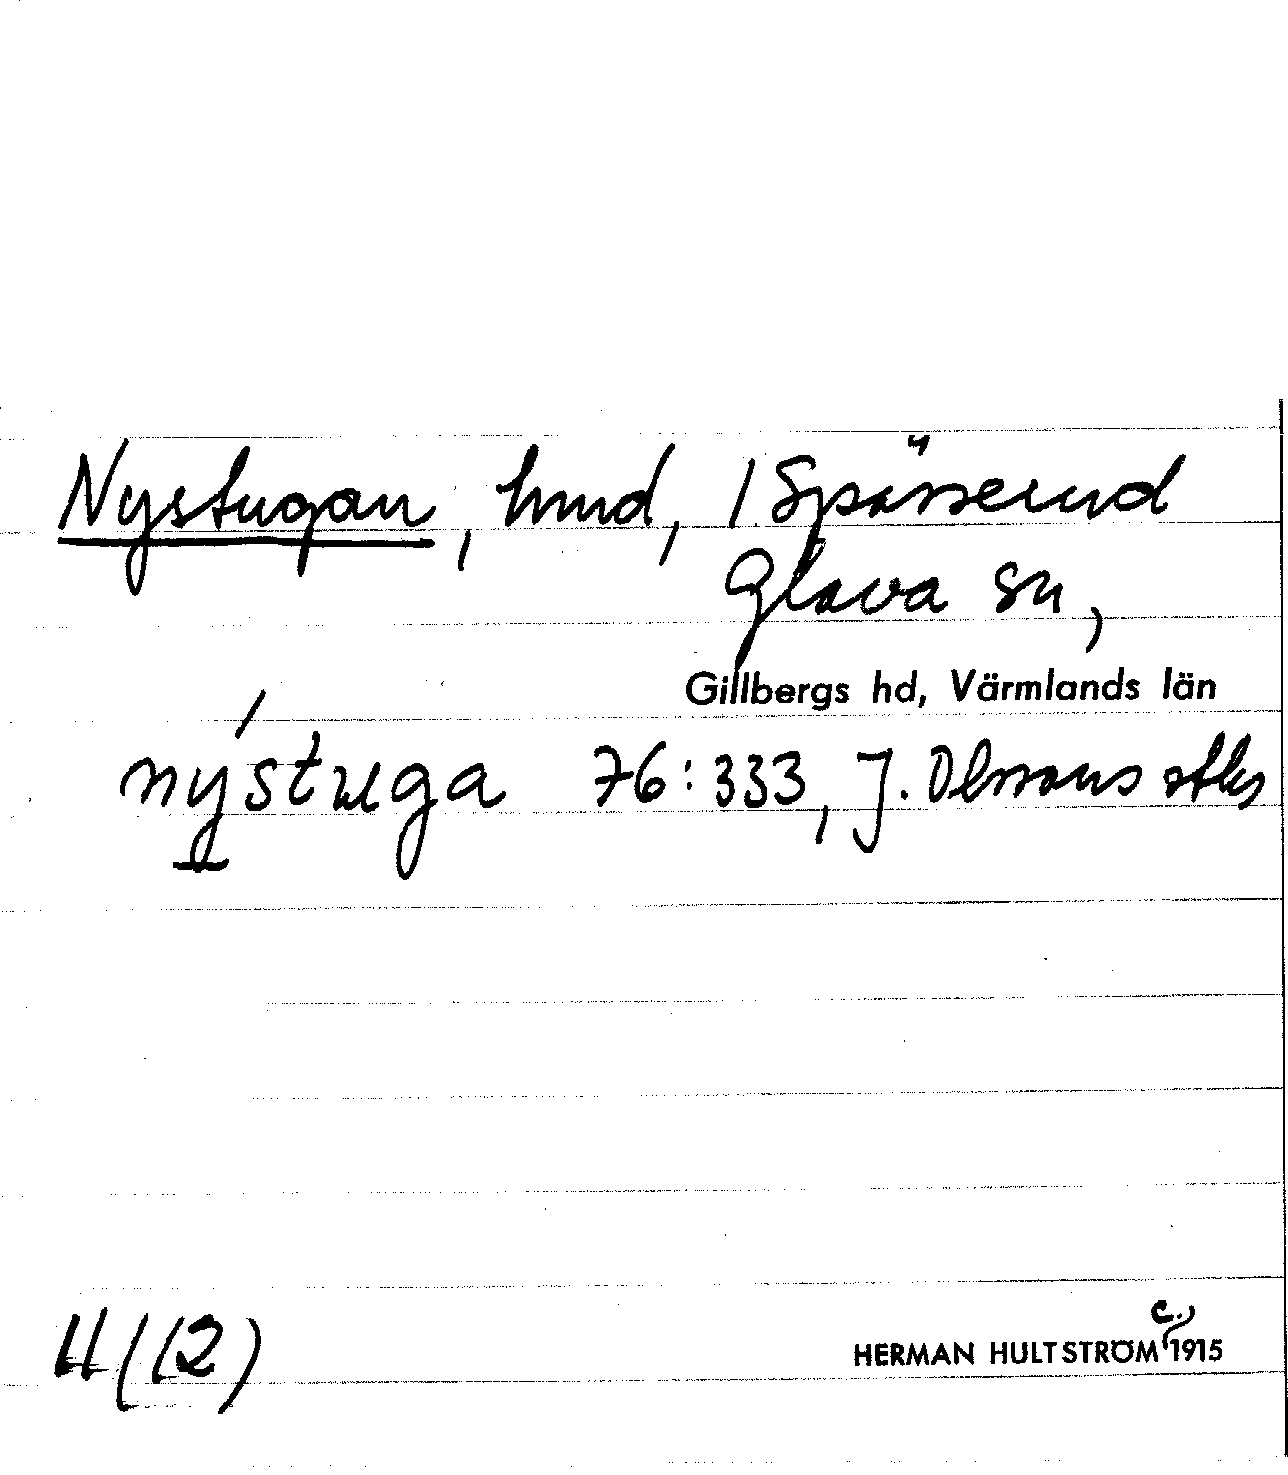 Nystugan, hmd, 1 Spässerud
Glava sn,
Gillbergs hd, Värmlands län
nýstuga 76:333, J. Olssons atlas
(12)
HERMAN HULTSTRÖM c. 1915